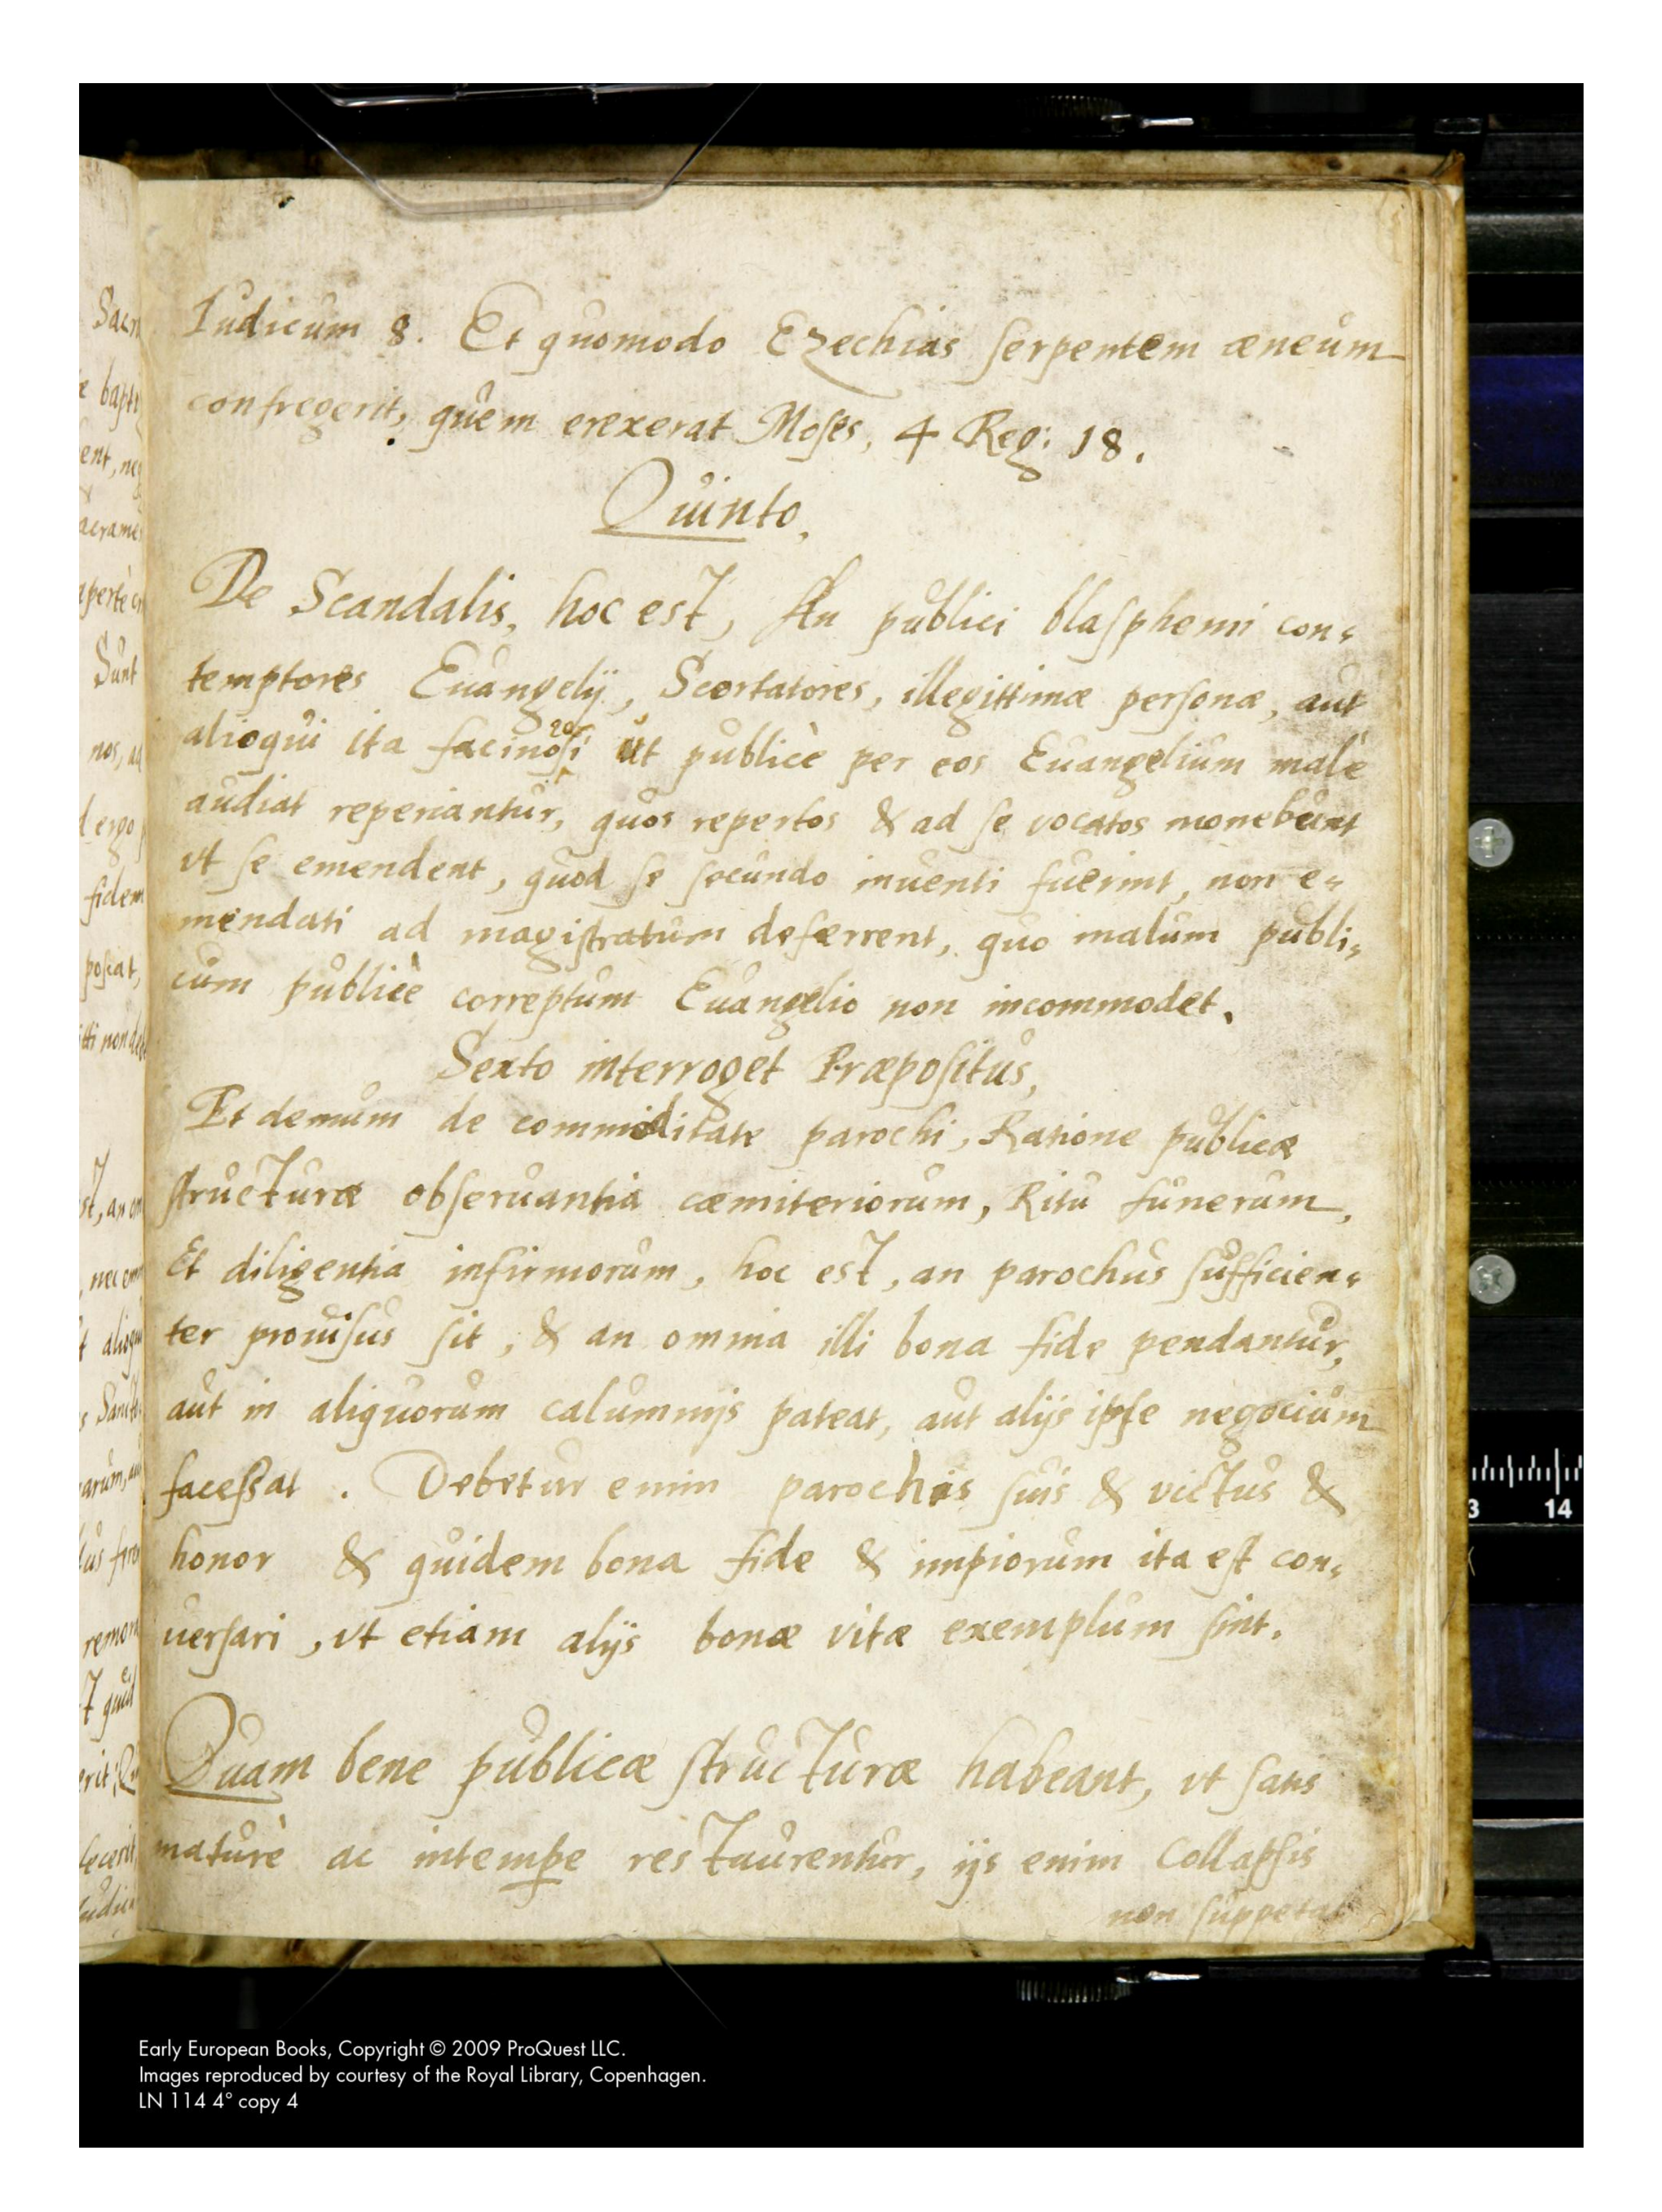 Iudicum 8. Et quomodo Ezechias serpentem æneum
confregerit, quem erexerat Moses, 4 Reg: 18.
Quinto,
De Scandalis, hoc est, An publici blasphemi con-
temptores Euangelij, Scortatores, illegittimæ personæ, aut
alioqui ita facinorosi ut publicè per eos Euangelium malè
audiat reperiantur, quos repertos & ad se vocatos monebunt
vt se emendent, quod se secundo inuenti fuerint, non e-
mendati ad magistratum defærrent, quo malum publi-
cum publicè correptum Euangelio non incommodet.
Sexto interroget Præpositus,
Et demum de commoditate parochi, Ratione publicæ
structuræ obseruantia cæmiteriorum, Ritu funerum,
Et diligentia infirmorum, hoc est, an parochus sufficien-
ter prouisus sit, & an omnia illi bona fide pendantur,
aut in aliquorum calumnijs pateat, aut alijs ipse negocium
facessat. Debetur enim parochis suis & victus &
honor & quidem bona fide & impiorum ita est con-
uersari, vt etiam alijs bonæ vitæ exemplum sint.
Quam bene publicæ structuræ habeant, vt satis
maturè ac intempe restaurentur, ijs enim Collapsis
non suppetat
Sacr
bapti
ent, ne
acrame
apertè
Sunt
nos, a
ergo
fidem
poscat,
non
Early European Books, Copyright © 2009 ProQuest LLC.
Images reproduced by courtesy of the Royal Library, Copenhagen.
LN 114 4° copy 4
3 14